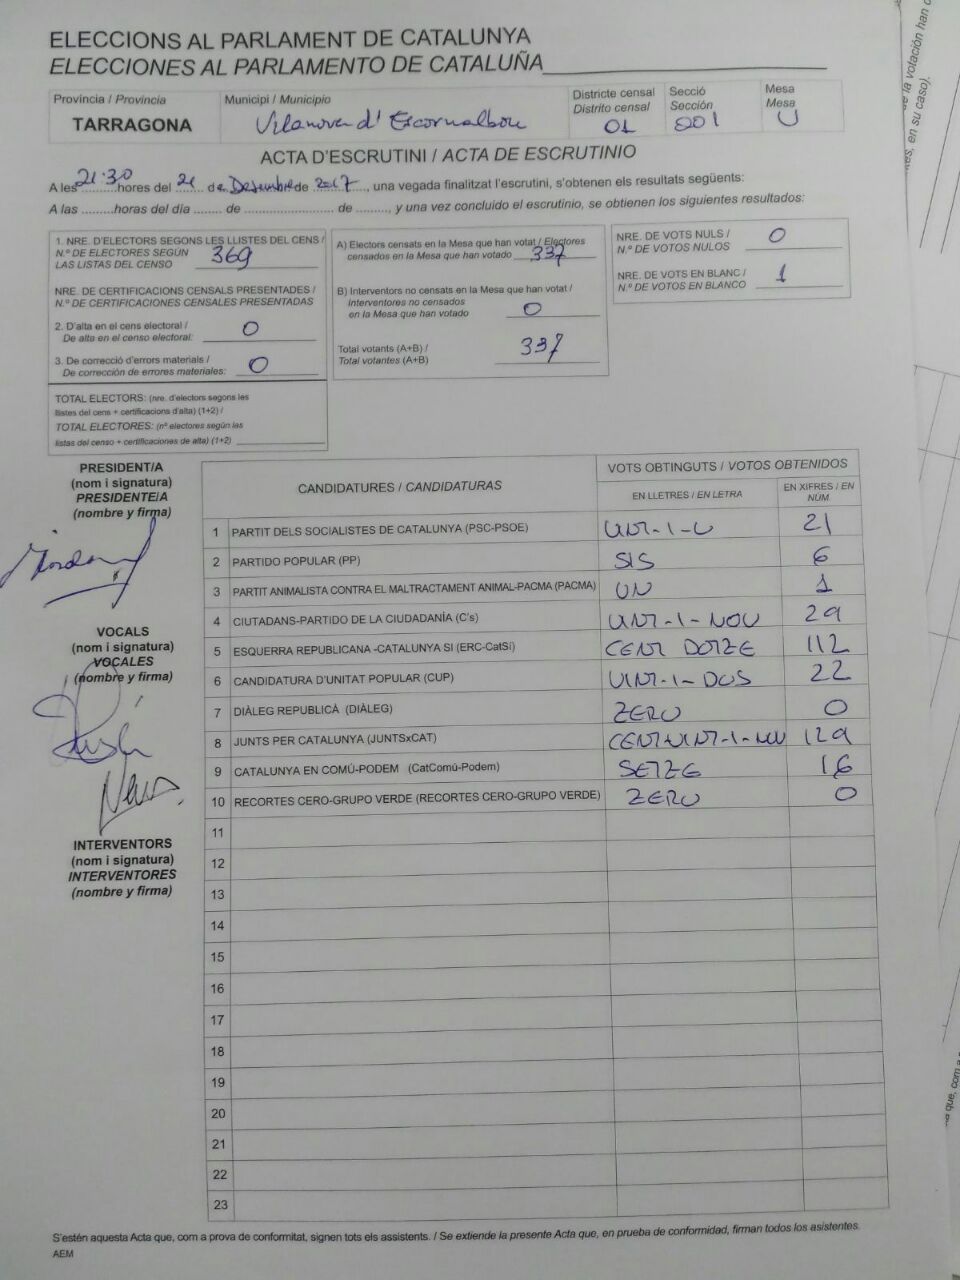 ELECCIONS AL PARLAMENT DE CATALUNYA
ELECCIONES AL PARLAMENTO DE CATALUÑA
Provincia / Provincia
TARRAGONA
Municipi / Municipio
Vilanova d'Escornalbou
Districte censal
Distrito censal
01
Secció
Sección
001
Mesa
Mesa
U
ACTA D'ESCRUTINI / ACTA DE ESCRUTINIO
A les 21:30 hores del 21 de Desembre de 2017, una vegada finalitzat l'escrutini, s'obtenen els resultats següents:
A las .........horas del día ........ de .......................... de ........., y una vez concluido el escrutinio, se obtienen los siguientes resultados:
1. NRE. D'ELECTORS SEGONS LES LLISTES DEL CENS /
N.º DE ELECTORES SEGÚN
LAS LISTAS DEL CENSO 369
NRE. DE CERTIFICACIONS CENSALS PRESENTADES /
N.º DE CERTIFICACIONES CENSALES PRESENTADAS
2. D'alta en el cens electoral /
De alta en el censo electoral: 0
3. De correcció d'errors materials /
De corrección de errores materiales: 0
TOTAL ELECTORS: (nre. d'electors segons les
llistes del cens + certificacions d'alta) (1+2) /
TOTAL ELECTORES: (nº electores según las
listas del censo + certificaciones de alta) (1+2)
A) Electors censats en la Mesa que han votat / Electores
censados en la Mesa que han votado 337
B) Interventors no censats en la Mesa que han votat /
Interventores no censados
en la Mesa que han votado 0
Total votants (A+B) /
Total votantes (A+B) 337
NRE. DE VOTS NULS /
N.º DE VOTOS NULOS 0
NRE. DE VOTS EN BLANC /
N.º DE VOTOS EN BLANCO 1
PRESIDENT/A
(nom i signatura)
PRESIDENTE/A
(nombre y firma)
VOCALS
(nom i signatura)
VOCALES
(nombre y firma)
INTERVENTORS
(nom i signatura)
INTERVENTORES
(nombre y firma)
CANDIDATURES / CANDIDATURAS
VOTS OBTINGUTS / VOTOS OBTENIDOS
EN LLETRES / EN LETRA
EN XIFRES / EN NÚM.
1 PARTIT DELS SOCIALISTES DE CATALUNYA (PSC-PSOE) VINT-I-U 21
2 PARTIDO POPULAR (PP) SIS 6
3 PARTIT ANIMALISTA CONTRA EL MALTRACTAMENT ANIMAL-PACMA (PACMA) UN 1
4 CIUTADANS-PARTIDO DE LA CIUDADANÍA (C's) VINT-I-NOU 29
5 ESQUERRA REPUBLICANA -CATALUNYA SI (ERC-CatSí) CENT DOTZE 112
6 CANDIDATURA D'UNITAT POPULAR (CUP) VINT-I-DOS 22
7 DIÀLEG REPUBLICÀ (DIÀLEG) ZERO 0
8 JUNTS PER CATALUNYA (JUNTSxCAT) CENT-VINT-I-NOU 129
9 CATALUNYA EN COMÚ-PODEM (CatComú-Podem) SETZE 16
10 RECORTES CERO-GRUPO VERDE (RECORTES CERO-GRUPO VERDE) ZERO 0
11
12
13
14
15
16
17
18
19
20
21
22
23
S'estén aquesta Acta que, com a prova de conformitat, signen tots els assistents. / Se extiende la presente Acta que, en prueba de conformidad, firman todos los asistentes.
AEM